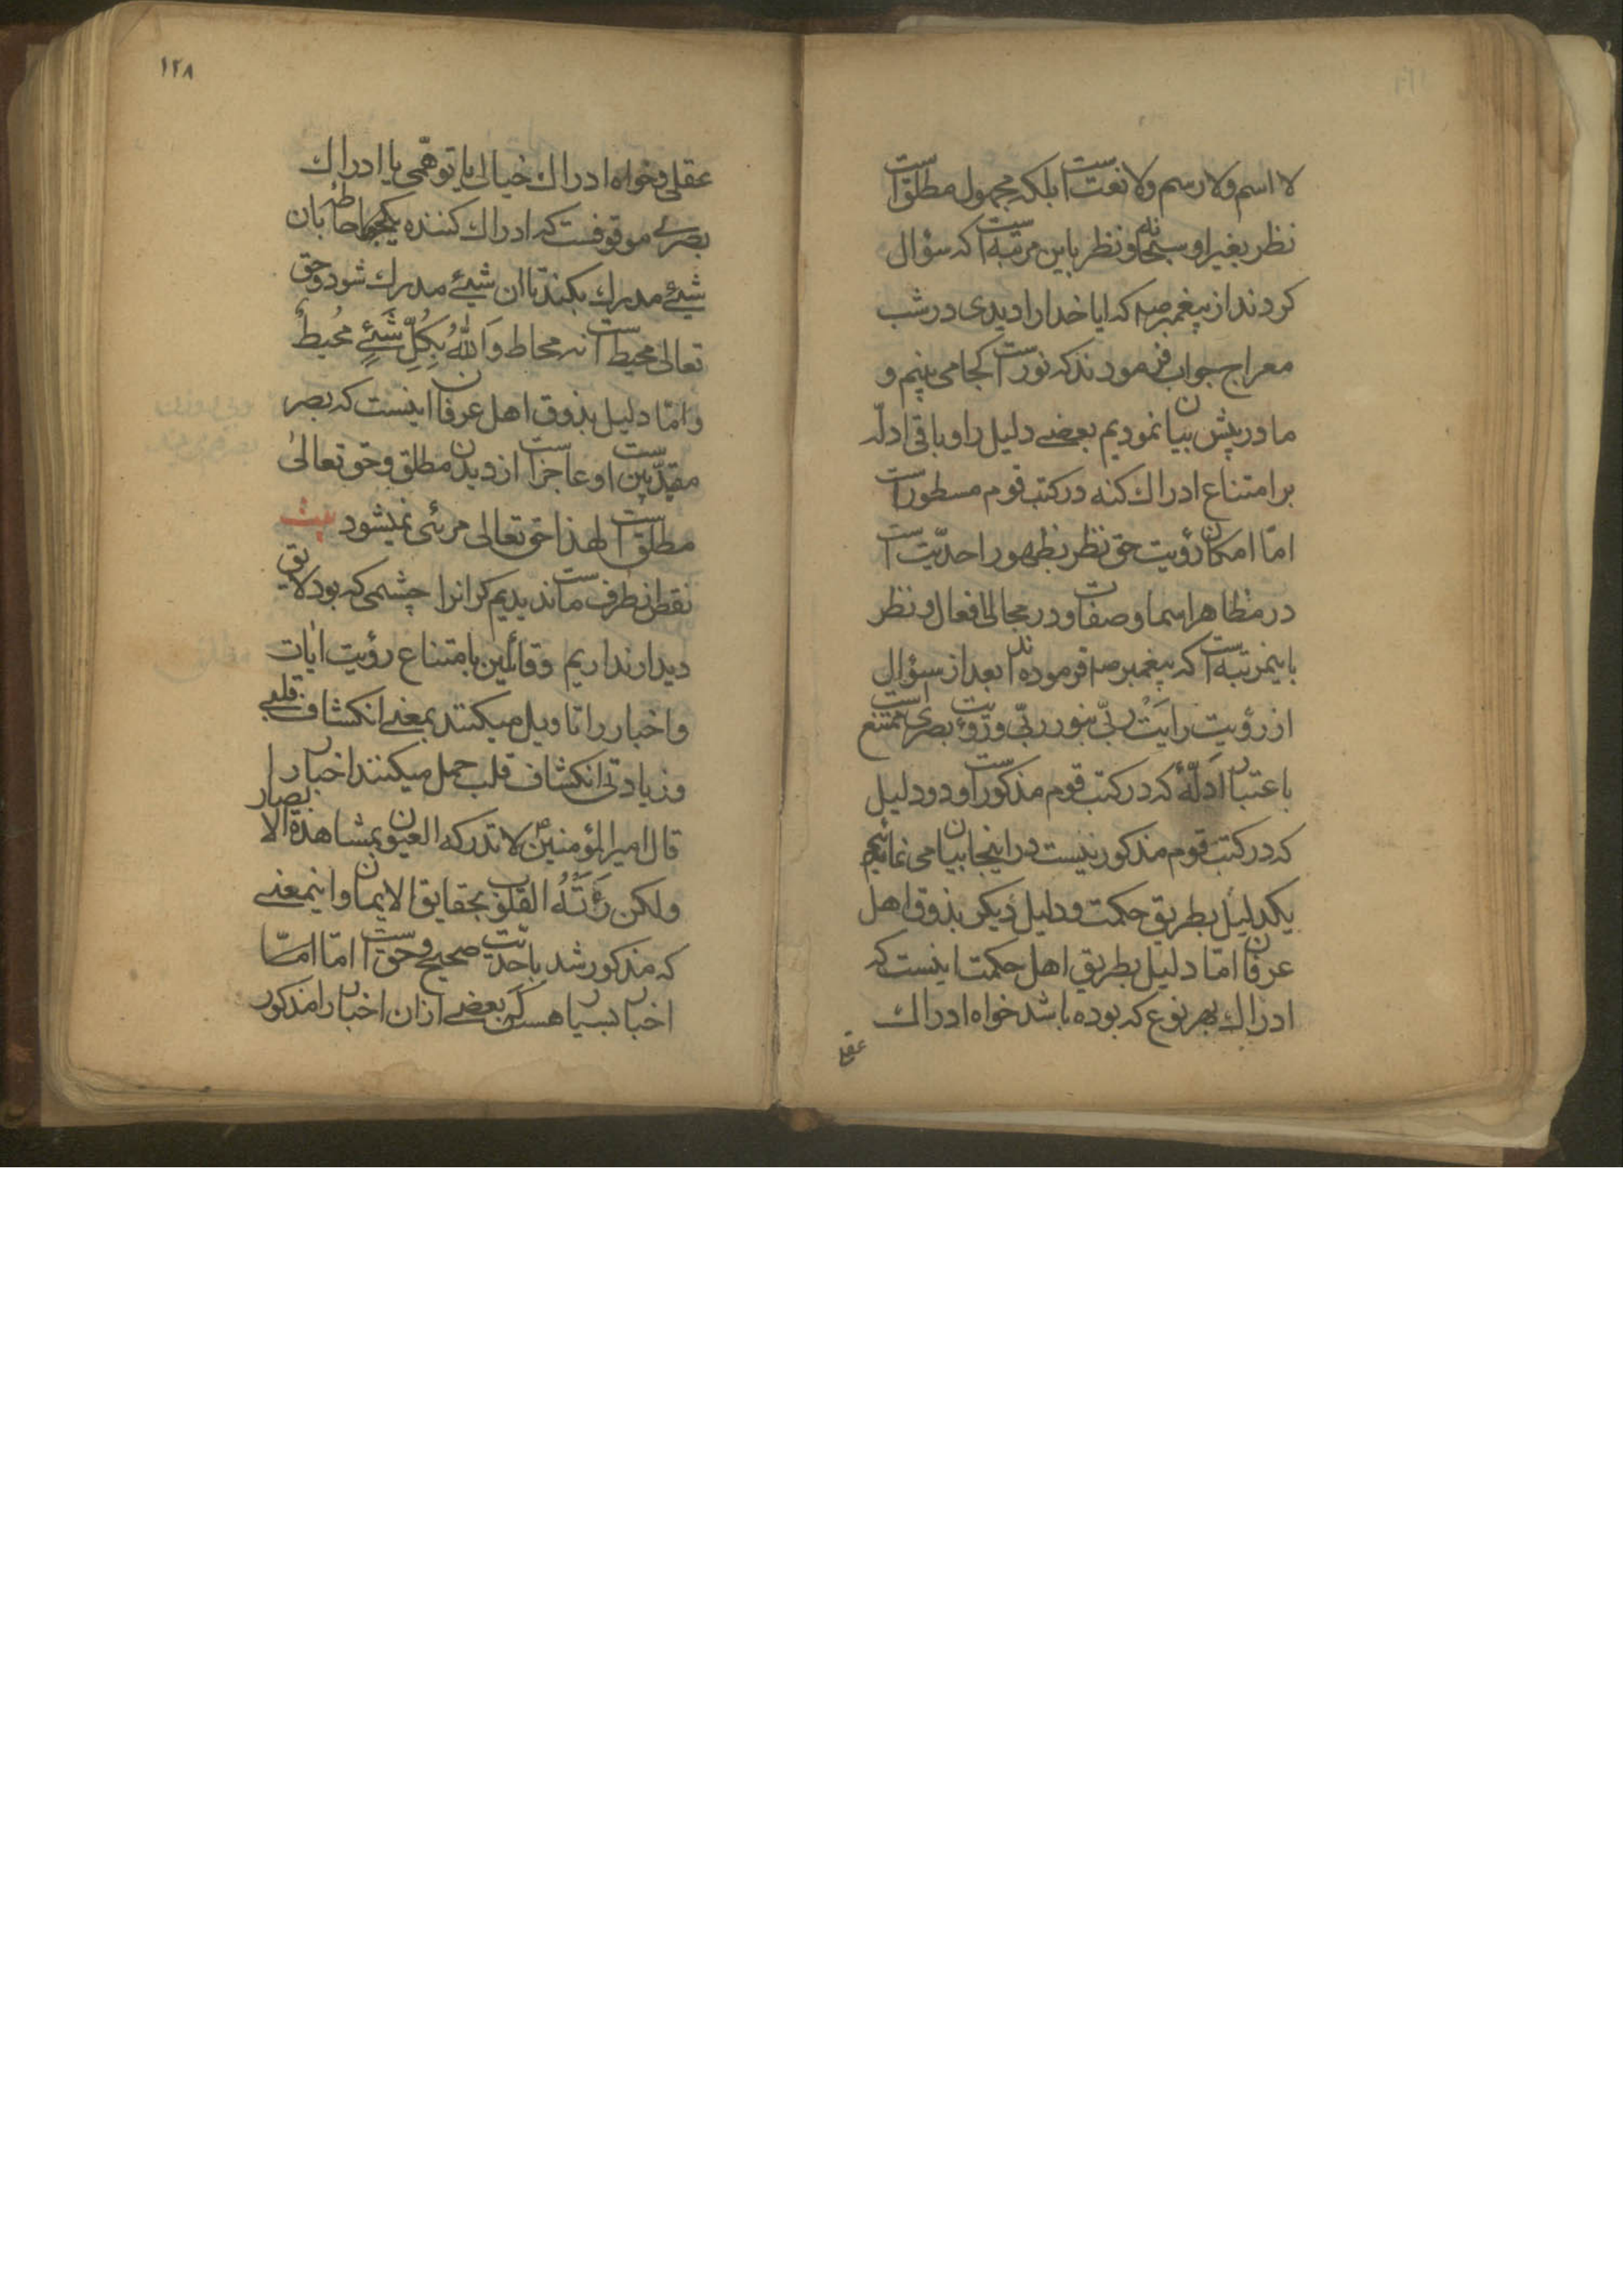 لا اسم ولا رسم ولا نعت است بلکه مجهول مطلق است
نظر بغیر او سبحانه و نظر باین مرتبه است که سؤال
کردند از پیغمبر صه که ایا خدا را دیدی در شب
معراج جواب فرمودند که نور است کجا می بینم و
ما در پیش بیان نمودیم بعضی دلیل را و باقی ادلّه
بر امتناع ادراك کنه در کتب قوم مسطور است
امّا امکان رؤیت حق نظر بظهور احدیّت است
در مظاهر اسما و صفات و در مجالی افعال و نظر
باینمرتبه است که پیغمبر صه فرموده اند بعد از سؤال
از رؤیت رایَتُ ربّی بنور ربّی و رؤیت بصری ممتنع است
باعتبار ادلّهٔ که در کتب قوم مذکور است و دو دلیل
که در کتب قوم مذکور نیست در اینجا بیان می نمائیم
یکدلیل بطریق حکمت و دلیل دیکر بذوق اهل
عرفان امّا دلیل بطریق اهل حکمت اینست که
ادراك بهر نوع که بوده باشد خواه ادراك
عقلی
۱۲۸
عقلی و خواه ادراك خیالی یا توهّمی یا ادراك
بصری موقوفست که ادراك کننده یکجا احاطه بان
شیئ مدرك بکند تا ان شیئ مدرك شود و حق
تعالی محیط است نه محاط وَاللهُ بِکُلِّ شَیْئٍ مُحیطٌ
و امّا دلیل بذوق اهل عرفان اینست که بصر
مقیّد بین است او عاجز است از دیدن مطلق و حق تعالیٰ
مطلق است لهذا حق تعالی مرئی نمیشود بیت
نقص از طرف ماست ندیدیم کر انرا چشمی که بود لایق
دیدار نداریم وقائلین بامتناع رؤیت ایات
و اخبار را تاویل میکنند بمعنی انکشاف قلبی
و زیادتی انکشاف قلب حمل میکنند اخبار را
قال امیر المؤمنین ع لا تدرکه العیون بمشاهدة الابصار
ولکن رَءَتْهُ القلوب بحقایق الایمان و اینمعنی
که مذکور شد باحدیّت صحیح و حق است امّا امّا
اخبار بسیار هست که بعضی از ان اخبار را مذکور